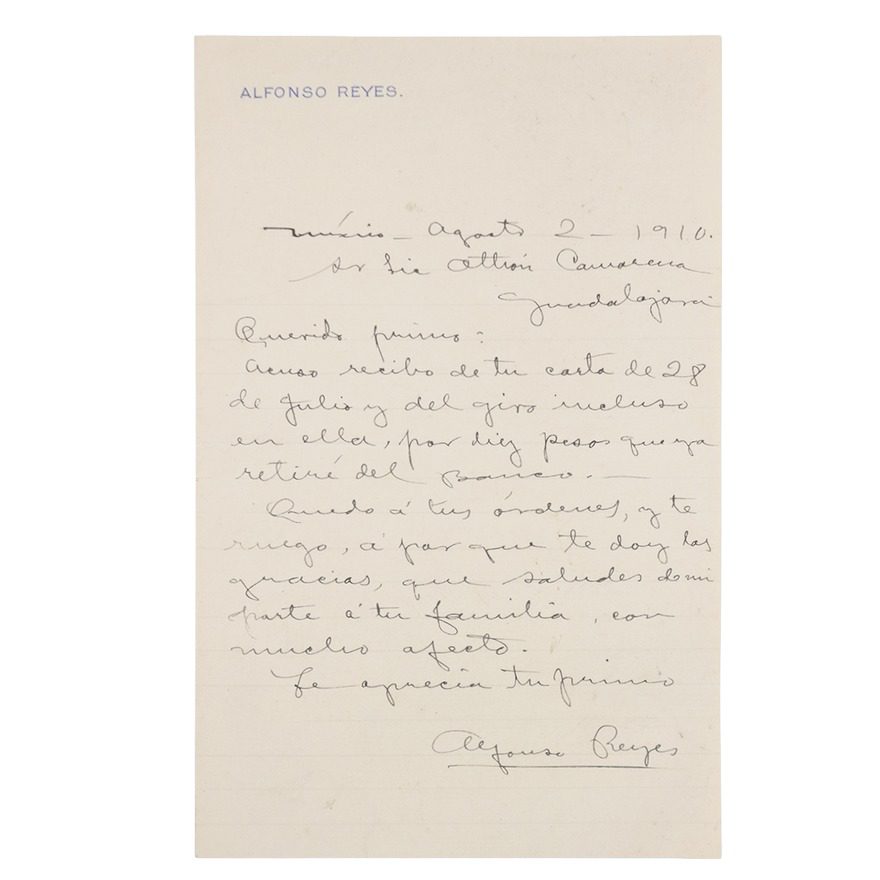 ALFONSO REYES.
México — Agosto 2 — 1910.
Sr Lic Camarena
Guadalajara
Querido primo:
Acuso recibo de tu carta de 28
de Julio y del giro incluso
en ella, por diez pesos que ya
retiré del Banco. —
Quedo á tus órdenes, y te
ruego, á par que te doy las
gracias, que saludes de mi
parte á tu familia, con
mucho afecto.
Te aprecia tu primo
Alfonso Reyes